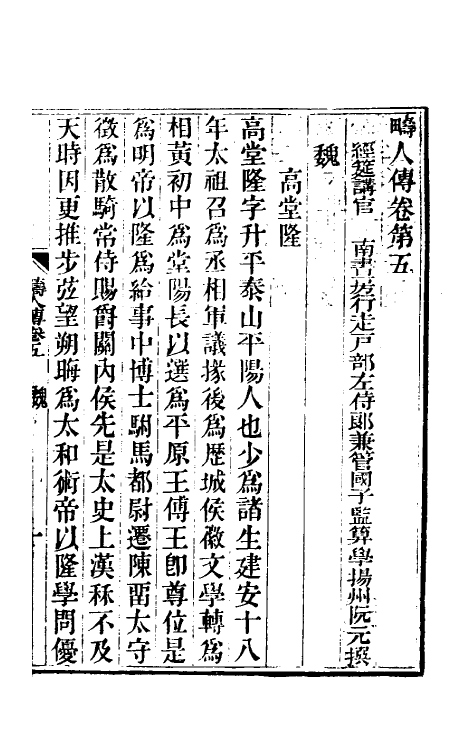 疇人傳卷第五
經筵講官　南書房行走戸部左侍郞兼管國子監算學揚州阮元撰
魏
高堂隆
高堂隆字升平泰山平陽人也少爲諸生建安十八
年太祖召爲丞相軍議掾後爲歷城侯徽文學轉爲
相黃初中爲堂陽長以選爲平原王傅王卽尊位是
爲明帝以隆爲給事中博士駙馬都尉遷陳畱太守
徵爲散騎常侍賜爵關內侯先是太史上漢秝不及
天時因更推步弦望朔晦爲太和術帝以隆學問優
疇人傳卷五　魏　一